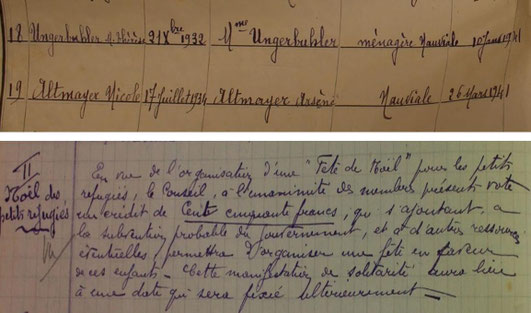 18 Ungerbuhler M. Thérèse 21 Xbre 1932 Mme Ungerbuhler ménagère Nauviale 10 1941
19 Altmayer Nicole 17 Juillet 1934 Altmayer Arsène Nauviale 26 Mars 1941
II
Noël des
petits refugiés
En vue de l'organisation d'une "Fête de Noël" pour les petits
refugiés, le Conseil, à l'unanimité des membres présents vote
un crédit de Cent cinquante francs, qui s'ajoutant à
la subvention probable du gouvernement, et à d'autres ressources
éventuelles, permettra d'organiser une fête en faveur
de ces enfants - Cette manifestation de solidarité aura lieu
à une date qui sera fixée ultérieurement -